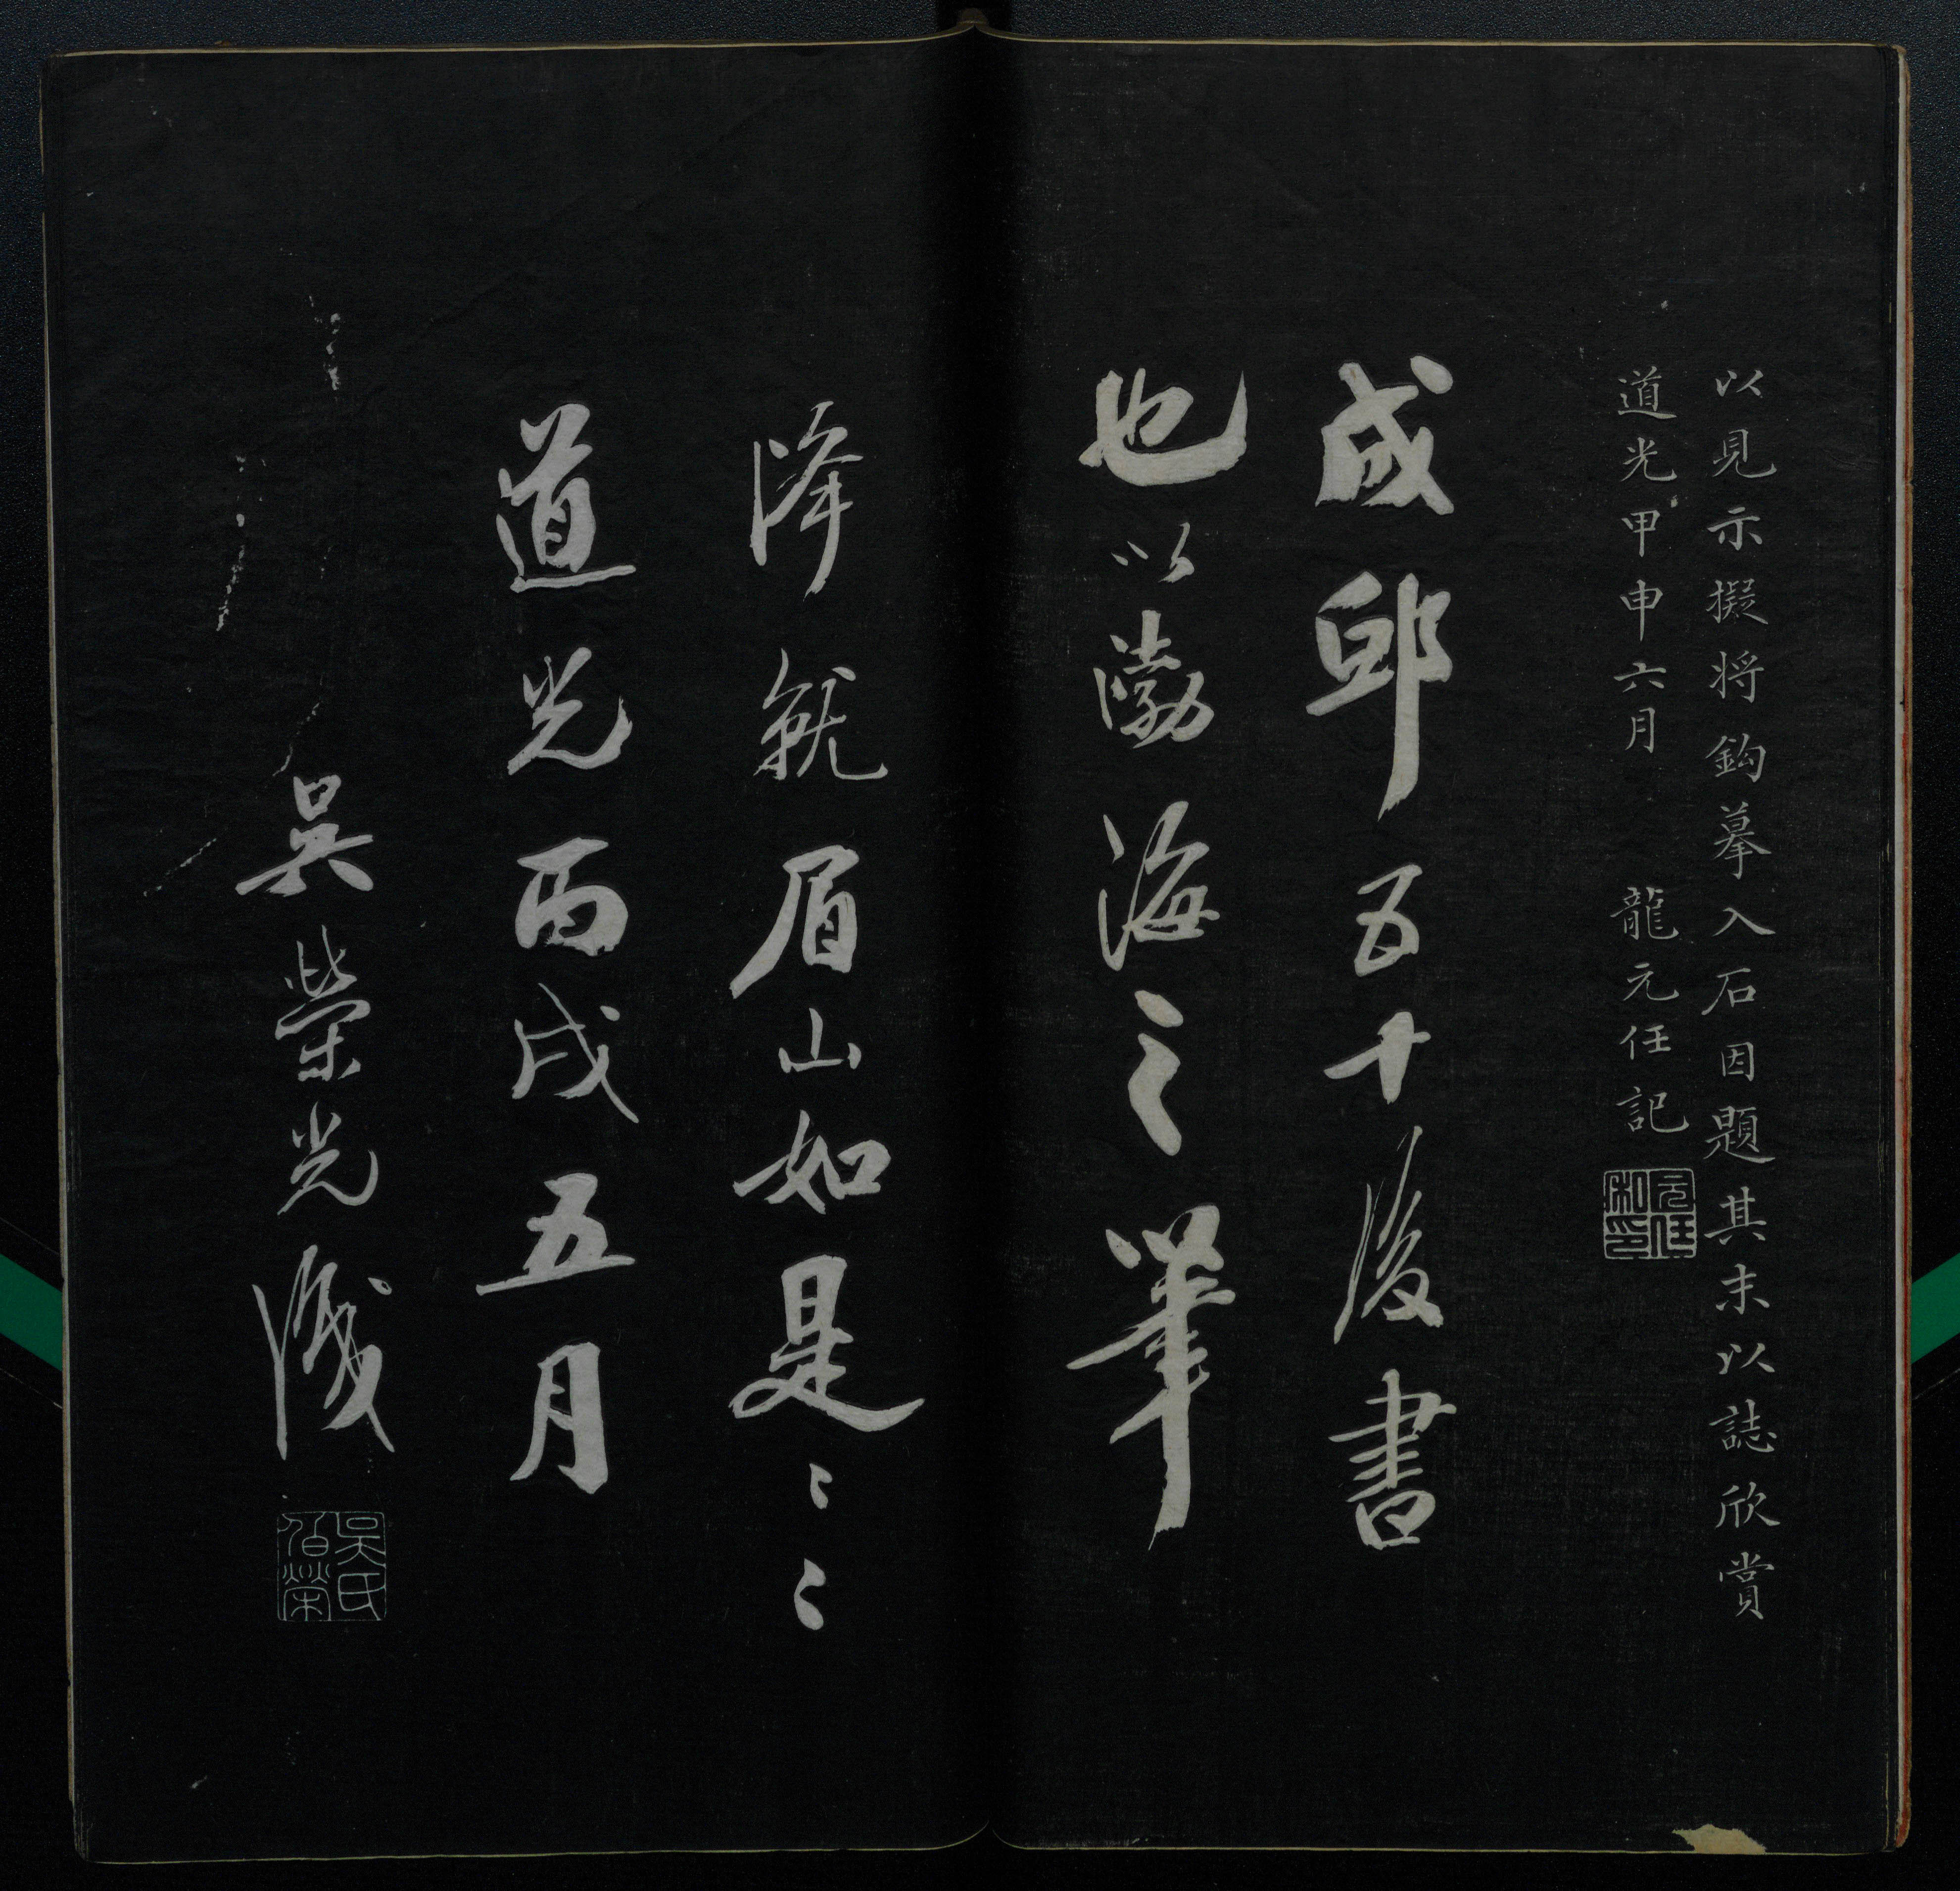 以見示擬将鈎摹入石因題其末以誌欣賞
道光甲申六月 龍元任記
元任私印
成邸五十後書
也以渤海之筆
降就眉山如是〻〻
道光丙戌五月
吳榮光識
吳氏伯榮